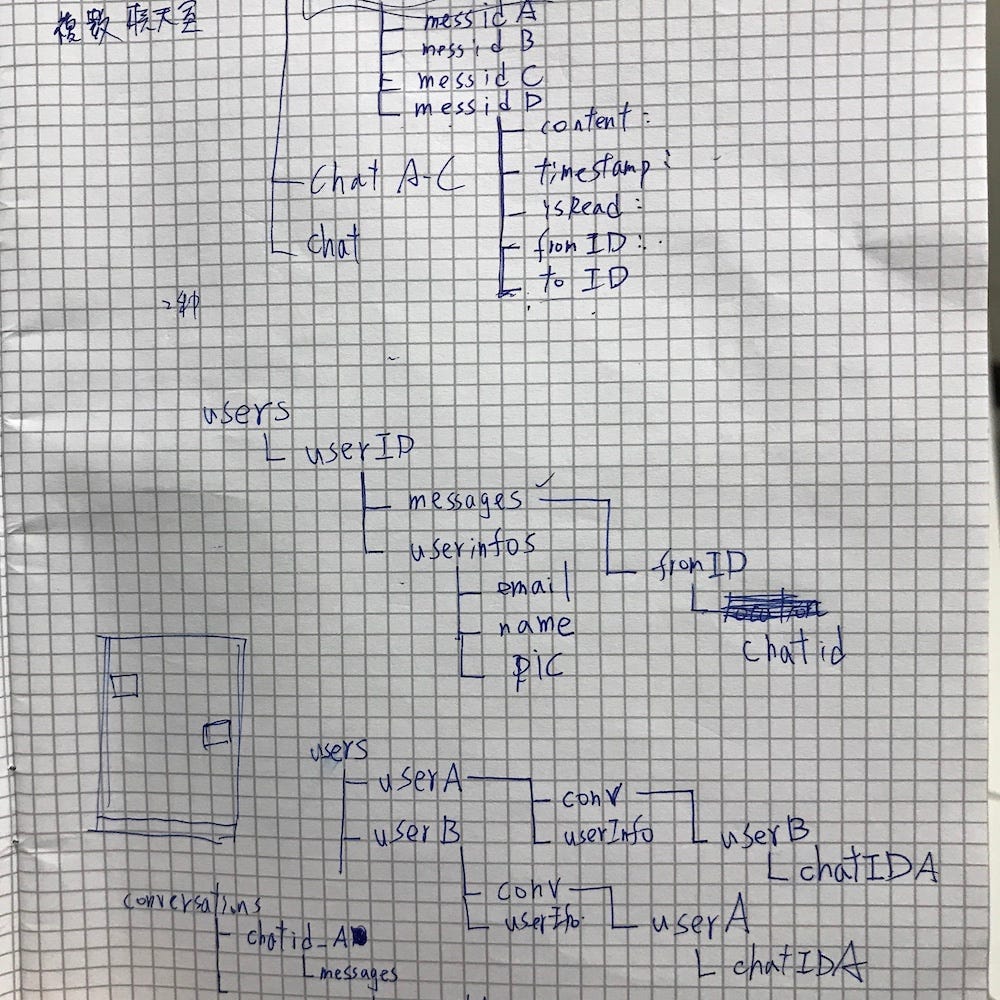 複數聊天室
messid A
messid B
messid C
messid D
content:
timestamp:
isRead:
fromID:
to ID
Chat A-C
chat
users
userID
messages
userinfos
email
name
pic
fromID
chat id
users
userA
conv
userInfo
userB
chatIDA
userB
conv
userIfo
userA
chatIDA
conversations
chatid_A
messages